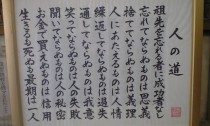 人の道
祖先を忘れる者に成功者なし
忘れてならぬものは恩義
捨ててならぬものは義理
人にあたえるものは人情
繰返してならぬものは過失
通してならぬものは我意
笑ってならぬものは人の失敗
聞いてならぬものは人の秘密
お金で買えぬものは信用
生きるも死ぬも最期は一人